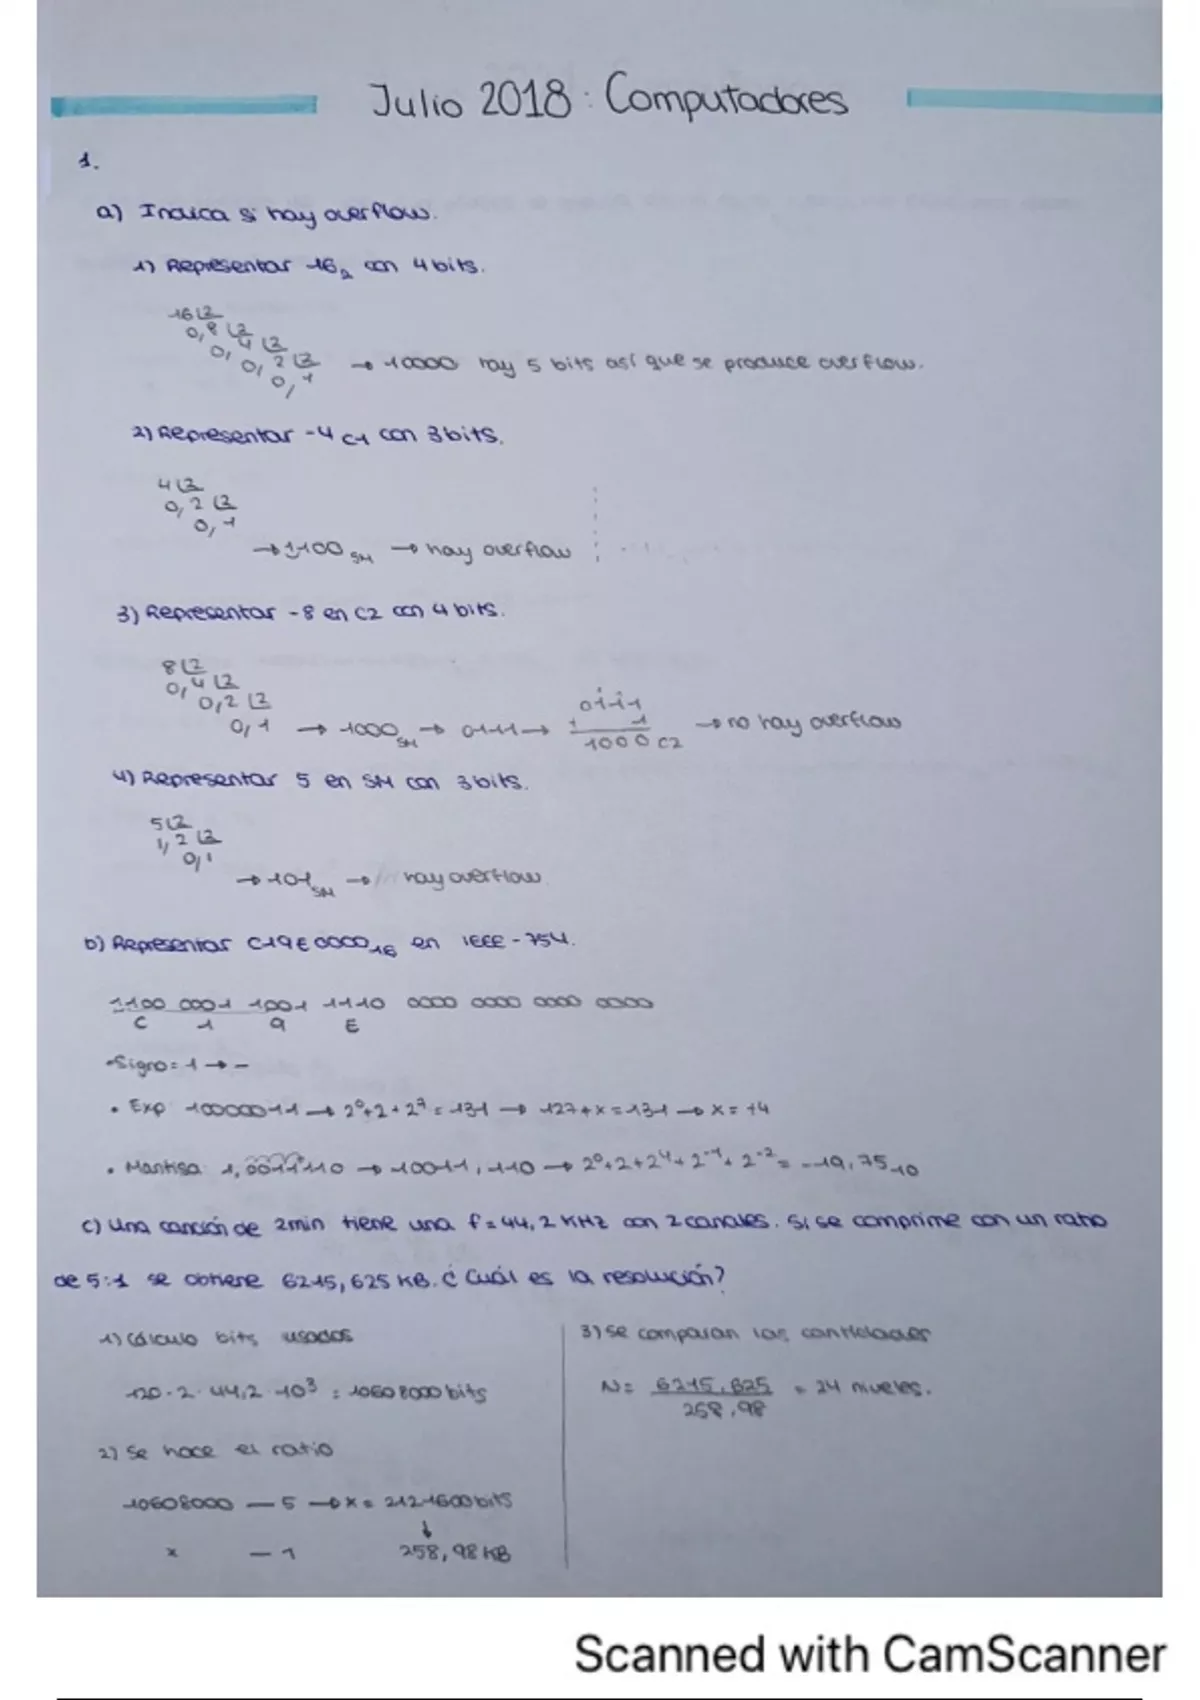 Julio 2018: Computadores
1.
a) Indica si hay overflow.
1) Representar 16₂ con 4 bits.
16 |2
0, 8 |2
0, 4 |2
0, 2 |2
0, 1 → 10000 hay 5 bits así que se produce overflow.
2) Representar -4 C1 con 3 bits.
4 |2
0, 2 |2
0, 1
→ 1100 SM → hay overflow
3) Representar -8 en C2 con 4 bits.
8 |2
0, 4 |2
0, 2 |2
0, 1 → 1000 SM → 0111 → 0111 + 1 1000 C2 → no hay overflow
4) Representar 5 en SM con 3 bits.
5 |2
1, 2 |2
0, 1
→ 101 SM → hay overflow.
b) Representar C19E0000₁₆ en IEEE-754.
1100 0001 1001 1110 0000 0000 0000 0000
C 1 9 E
• Signo = 1 → -
• Exp 10000011 → 2⁰+2+2⁷ = 131 → 127 + x = 131 → x = +4
• Mantisa: 1,0011110 → 10011,110 → 2⁰+2+2⁴+2⁻¹+2⁻² = -19,75₁₀
c) Una canción de 2min tiene una f = 44,2 KHz con 2 canales. Si se comprime con un ratio
de 5:1 se obtiene 6215,625 KB. ¿Cuál es la resolución?
1) Cálculo bits usados
120 · 2 · 44,2 · 10³ = 10608000 bits
2) Se hace el ratio
10608000 — 5 → x = 2121600 bits
↓
x — 1 258,98 KB
3) Se comparan las cantidades
N = 6215,625 / 258,98 = 24 niveles.
Scanned with CamScanner